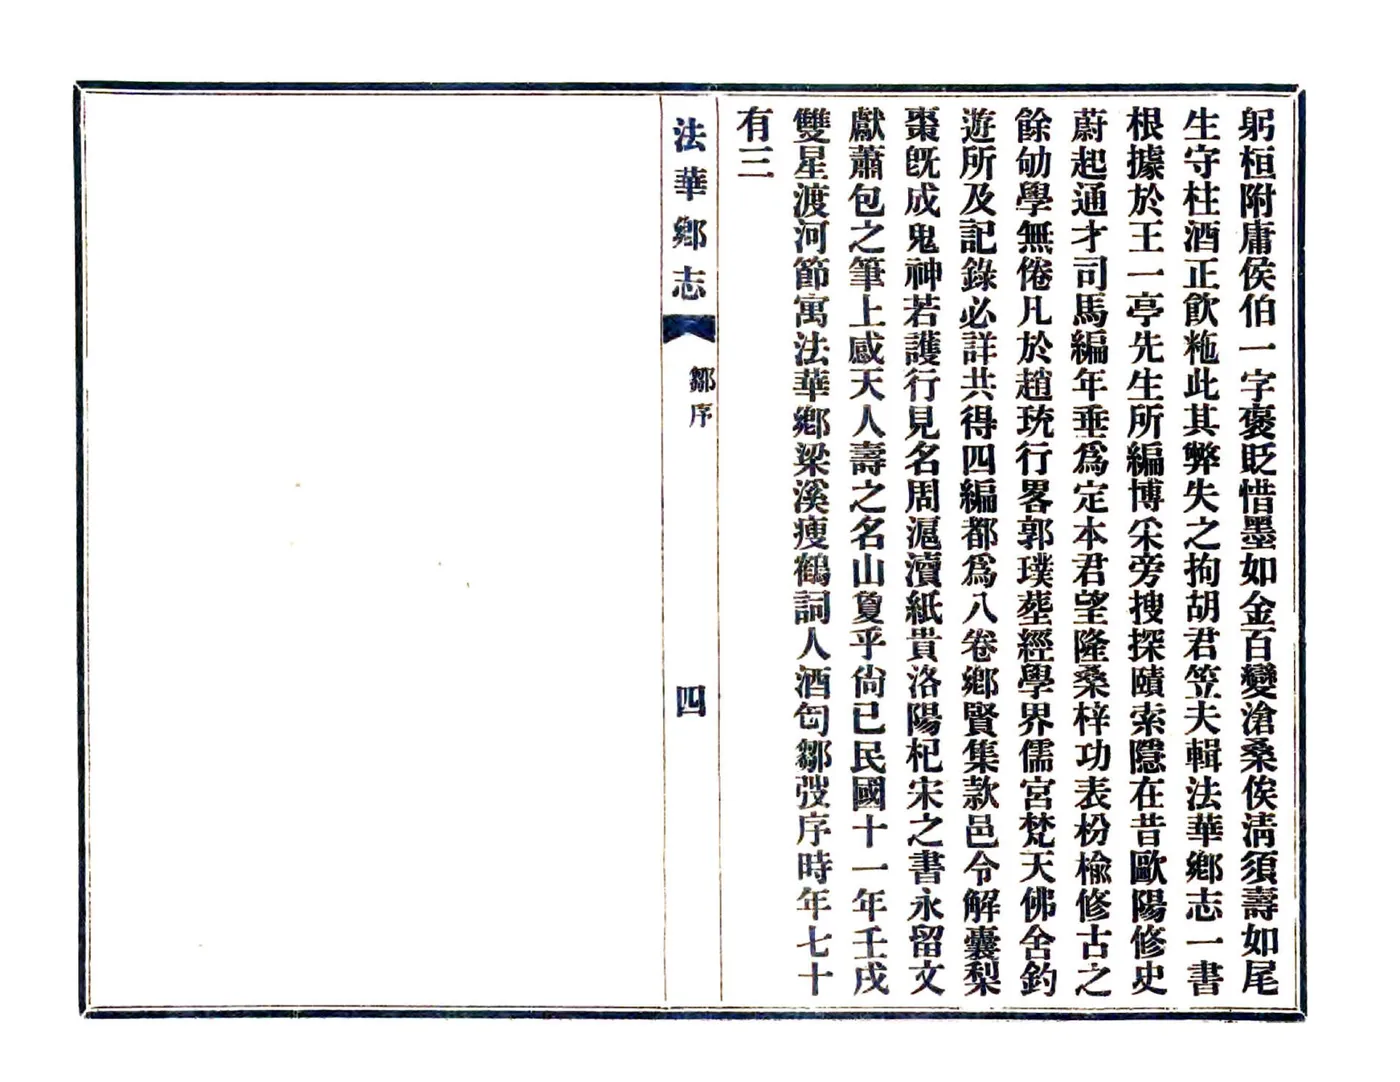 躬桓附庸侯伯一字褒貶惜墨如金百變滄桑俟淸須壽如尾
生守柱酒正飮粚此其弊失之拘胡君笠夫輯法華鄕志一書
根據於王一亭先生所編博采旁搜探賾索隱在昔歐陽修史
蔚起通才司馬編年垂爲定本君望隆桑梓功表枌楡修古之
餘劬學無倦凡於趙珫行畧郭璞塟經學界儒宮梵天佛舍釣
遊所及記錄必詳共得四編都爲八卷鄕賢集款邑令解囊梨
棗旣成鬼神若護行見名周滬瀆紙貴洛陽杞宋之書永留文
獻蕭包之筆上感天人壽之名山敻乎尙已民國十一年壬戌
雙星渡河節寓法華鄕梁溪瘦鶴詞人酒匄鄒弢序時年七十
有三
法華鄕志
鄒序
四